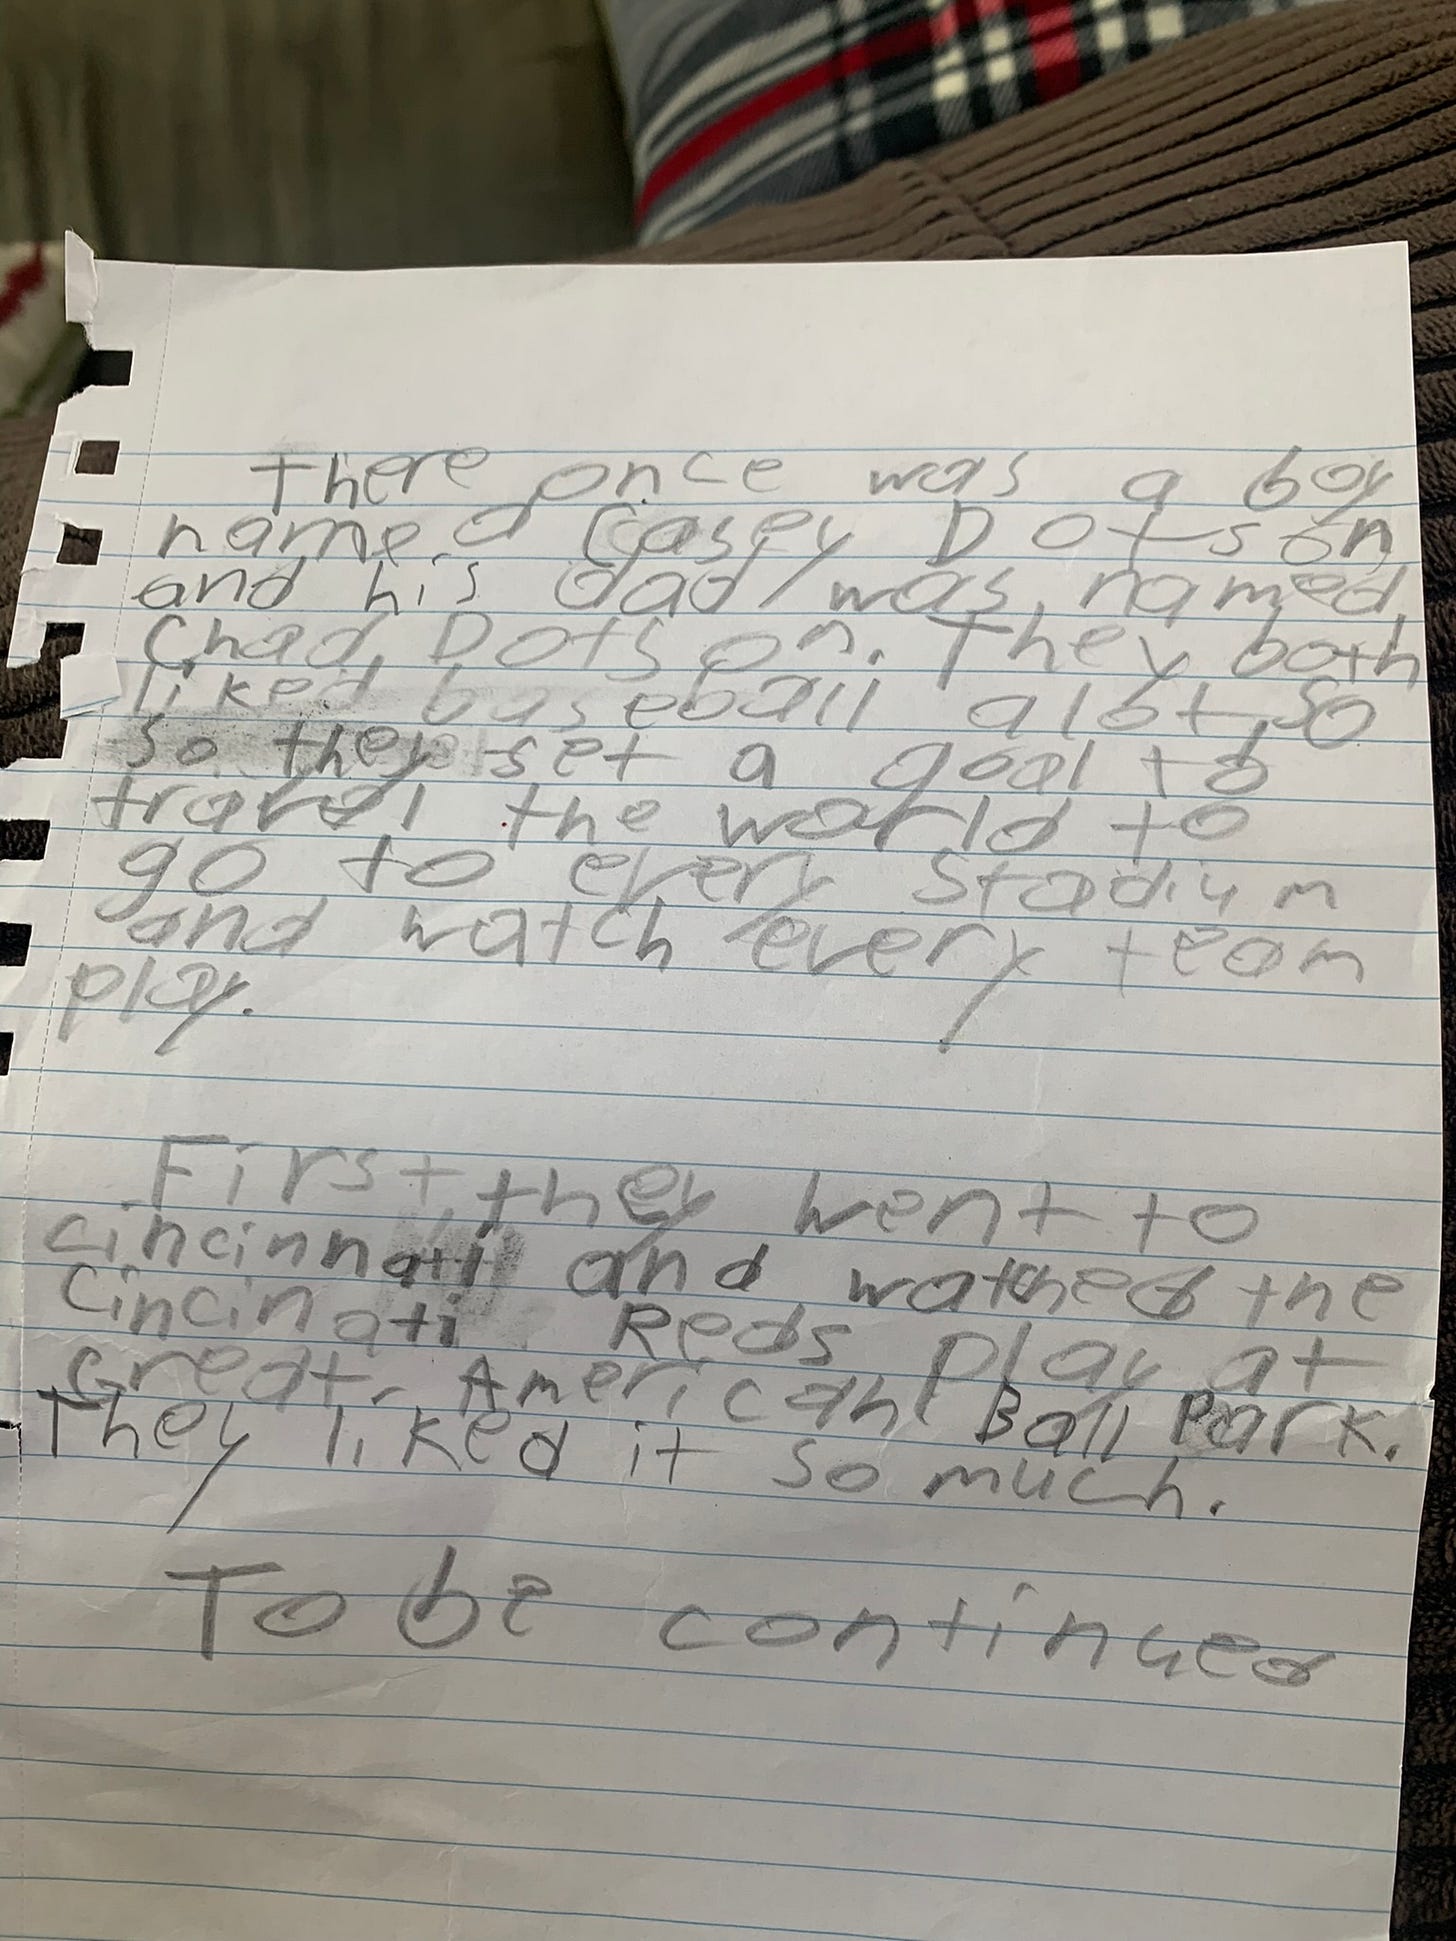 There once was a boy
named Casey Dotson,
and his dad was named
Chad Dotson. They both
liked baseball alot, so
so they set a goal to
travel the world to
go to every stadium
and watch every team
play.
First, they went to
cincinnati and watched the
Cincinati Reds play at
Great American Ball Park.
They liked it so much.
To be continued